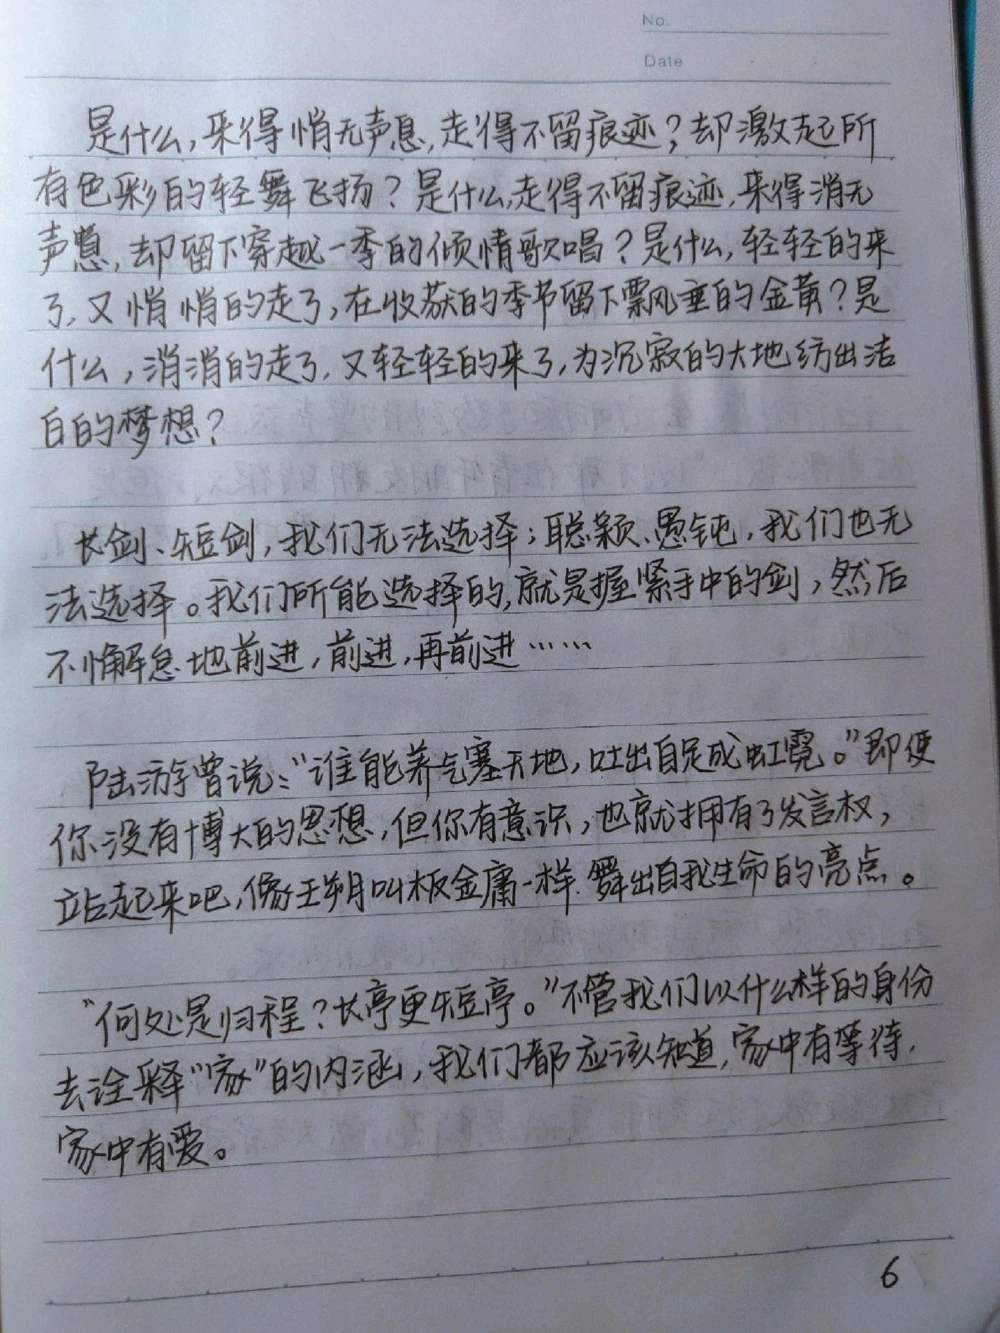 No.
Date
是什么,来得悄无声息,走得不留痕迹?却激起所
有色彩的轻舞飞扬?是什么,走得不留痕迹,来得消无
声息,却留下穿越一季的倾情歌唱?是什么,轻轻的来
了,又悄悄的走了,在收获的季节留下飘垂的金黄?是
什么,消消的走了,又轻轻的来了,为沉寂的大地纺出洁
白的梦想?
长剑、短剑,我们无法选择;聪颖、愚钝,我们也无
法选择。我们所能选择的,就是握紧手中的剑,然后
不懈怠地前进,前进,再前进……
陆游曾说:“谁能养气塞天地,吐出自足成虹霓。”即使
你没有博大的思想,但你有意识,也就拥有了发言权,
站起来吧,像王朔叫板金庸一样,舞出自我生命的亮点。
“何处是归程?长亭更短亭。”不管我们以什么样的身份
去诠释“家”的内涵,我们都应该知道,家中有等待,
家中有爱。
6